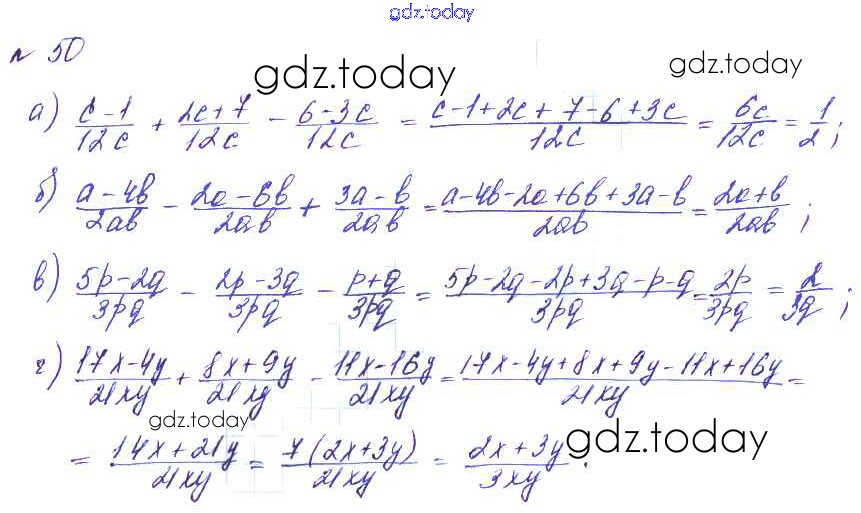 gdz.today
№ 50
gdz.today gdz.today
а) (c-1)/(12c) + (2c+7)/(12c) - (6-3c)/(12c) = (c-1+2c+7-6+3c)/(12c) = 6c/(12c) = 1/2;
б) (a-4b)/(2ab) - (2a-6b)/(2ab) + (3a-b)/(2ab) = (a-4b-2a+6b+3a-b)/(2ab) = (2a+b)/(2ab);
в) (5p-2q)/(3pq) - (2p-3q)/(3pq) - (p+q)/(3pq) = (5p-2q-2p+3q-p-q)/(3pq) = 2p/(3pq) = 2/(3q);
г) (17x-4y)/(21xy) + (8x+9y)/(21xy) - (11x-16y)/(21xy) = (17x-4y+8x+9y-11x+16y)/(21xy) =
gdz.today gdz.today
= (14x+21y)/(21xy) = 7(2x+3y)/(21xy) = (2x+3y)/(3xy).